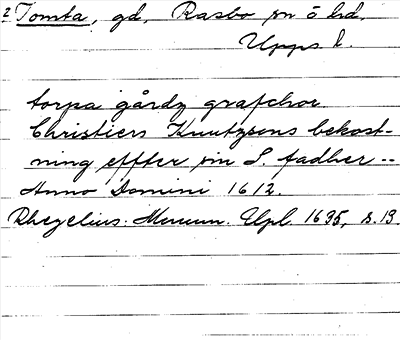 2 Tomta, gd, Rasbo sn ö hd,
Upps l.
torpa gårdz grafchor
Christiers Knutzsons bekost-
ning effter sin S. fadher --
Anno Domini 1612.
Rhezelius: Monum. Upl. 1635, s. 19.